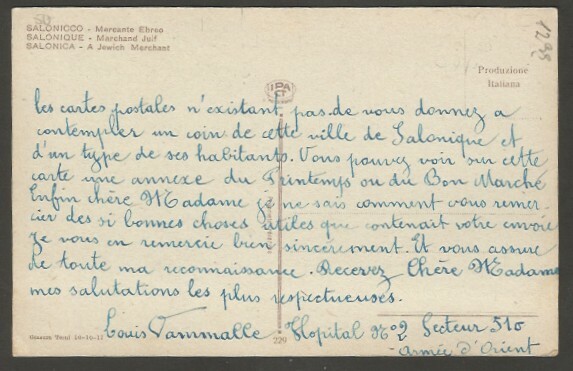 SALONICCO - Mercante Ebreo
SALONIQUE - Marchand Juif
SALONICA - A Jewich Merchant
1295
Produzione
Italiana
IPA
CT
les cartes postales n'existant pas. de vous donnez a
contempler un coin de cette ville de Salonique et
d'un type de ses habitants. Vous pouvez voir sur cette
carte une annexe du Printemps ou du Bon Marché
Enfin chère Madame je ne sais comment vous remer-
cier des si bonnes choses utiles que contenait votre envoie
Je vous en remercie bien sincèrement. Et vous assure
de toute ma reconnaissance. Recevez Chère Madame
mes salutations les plus respectueuses.
Louis Tammalle Hopital No 2 Secteur 510
Armée d'Orient
229